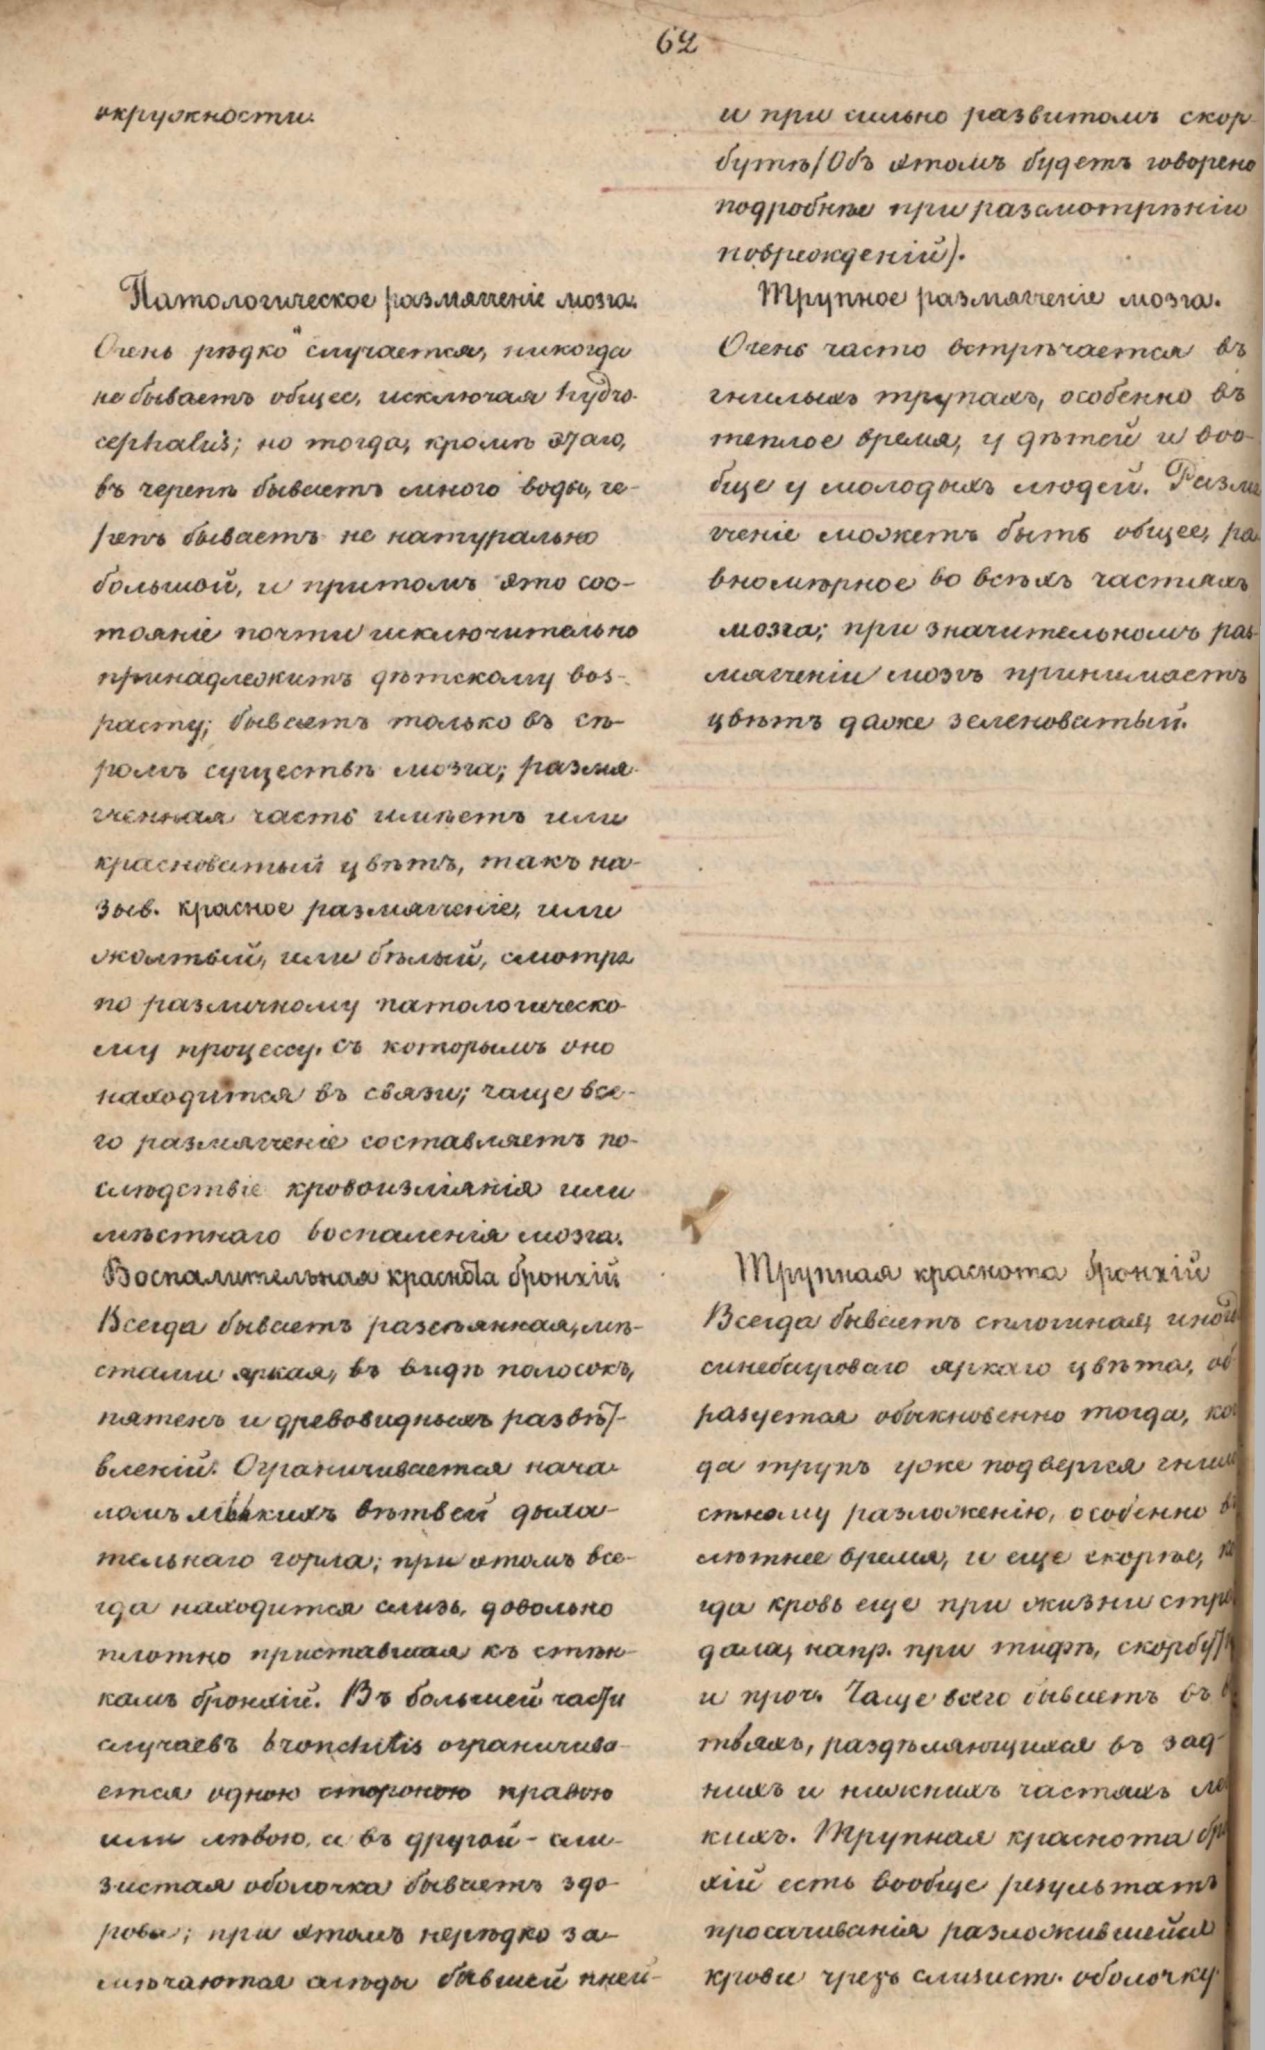 62
окружности.
Патологическое размягченіе мозга.
Очень рѣдко случается, никогда
не бываетъ общее, исключая hydro-
cephalus; но тогда, кромѣ этаго,
въ черепѣ бываетъ много воды, че-
репъ бываетъ не натурально
большой, и притомъ это сос-
тояніе почти исключительно
принадлежитъ дѣтскому воз-
расту; бываетъ только въ сѣ-
ромъ существѣ мозга; размя-
гченная часть имѣетъ или
красноватый цвѣтъ, такъ на-
зыв. красное размягченіе, или
жолтый, или бѣлый, смотря
по различному патологическо-
му процессу, съ которымъ оно
находится въ связи; чаще все-
го размягченіе составляетъ по-
слюдствіе кровоизліянія или
мѣстнаго воспаленія мозга.
Воспалительная краснота бронхій
Всегда бываетъ разсѣянная, мѣ-
стами яркая, въ видѣ полосокъ,
пятенъ и древовидныхъ развѣт-
вленій. Ограничивается нача-
ломъ мѣлкихъ вѣтвей дыха-
тельнаго горла; при этомъ все-
гда находится слизь, довольно
плотно приставшая къ стѣн-
камъ бронхій. Въ большей части
случаевъ bronchitis ограничива-
ется одною стороною правою
или лѣвою, а въ другой - сли-
зистая оболочка бываетъ здо-
рова; при этомъ нерѣдко за-
мѣчаются слѣды бывшей пней-
и при сильно развитомъ скор-
бутѣ (Объ этомъ будетъ говорено
подробнѣе при разсмотрѣніи
поврежденій).
Трупное размягченіе мозга.
Очень часто встрѣчается въ
гнилыхъ трупахъ, особенно въ
теплое время, у дѣтей и воо-
бще у молодыхъ людей. Размя
гченіе можетъ быть общее, ра
вномѣрное во всѣхъ частяхъ
мозга; при значительномъ раз-
мягченіи мозгъ принимаетъ
цвѣтъ даже зеленоватый.
Трупная краснота бронхій
Всегда бываетъ сплошная, иногд
синебагроваго яркаго цвѣта, об
разуется обыкновенно тогда, ко
да трупъ уже подвергся гнило
стному разложенію, особенно въ
лѣтнее время, и еще скорѣе, ко
гда кровь еще при жизни стра
дала, напр. при тифѣ, скорбутѣ
и проч. Чаще всего бываетъ въ в
твяхъ, раздѣляющихся въ зад-
нихъ и нижнихъ частяхъ ле
кихъ. Трупная краснота брн
хій есть вообще результатъ
просачиванія разложившейся
крови чрезъ слизист. оболочку